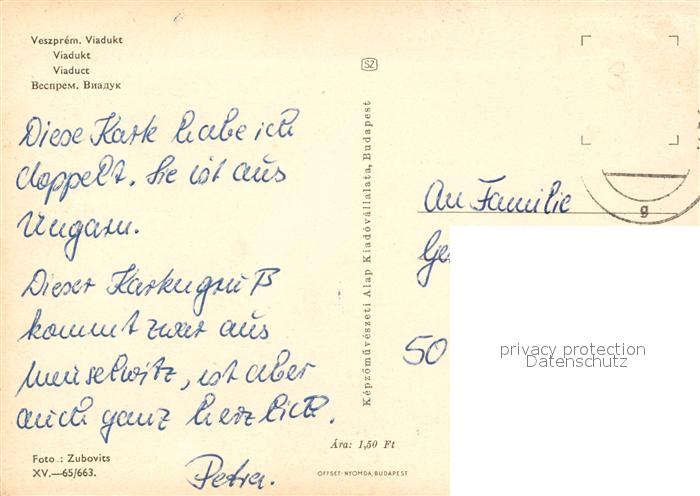 Veszprém. Viadukt
Viadukt
Viaduct
Веспрем. Виадук
SZ
3
Diese Karte habe ich
doppelt. Sie ist aus
Ungarn.
Dieser Kartengruß
kommt zwar aus
Meuselwitz, ist aber
auch ganz herzlich.
Petra.
Foto : Zubovits
XV.—65/663.
Képzőművészeti Alap Kiadóvállalata, Budapest
Ára: 1,50 Ft
OFFSET-NYOMDA, BUDAPEST
g
An Familie
Ge
50
privacy protection
Datenschutz